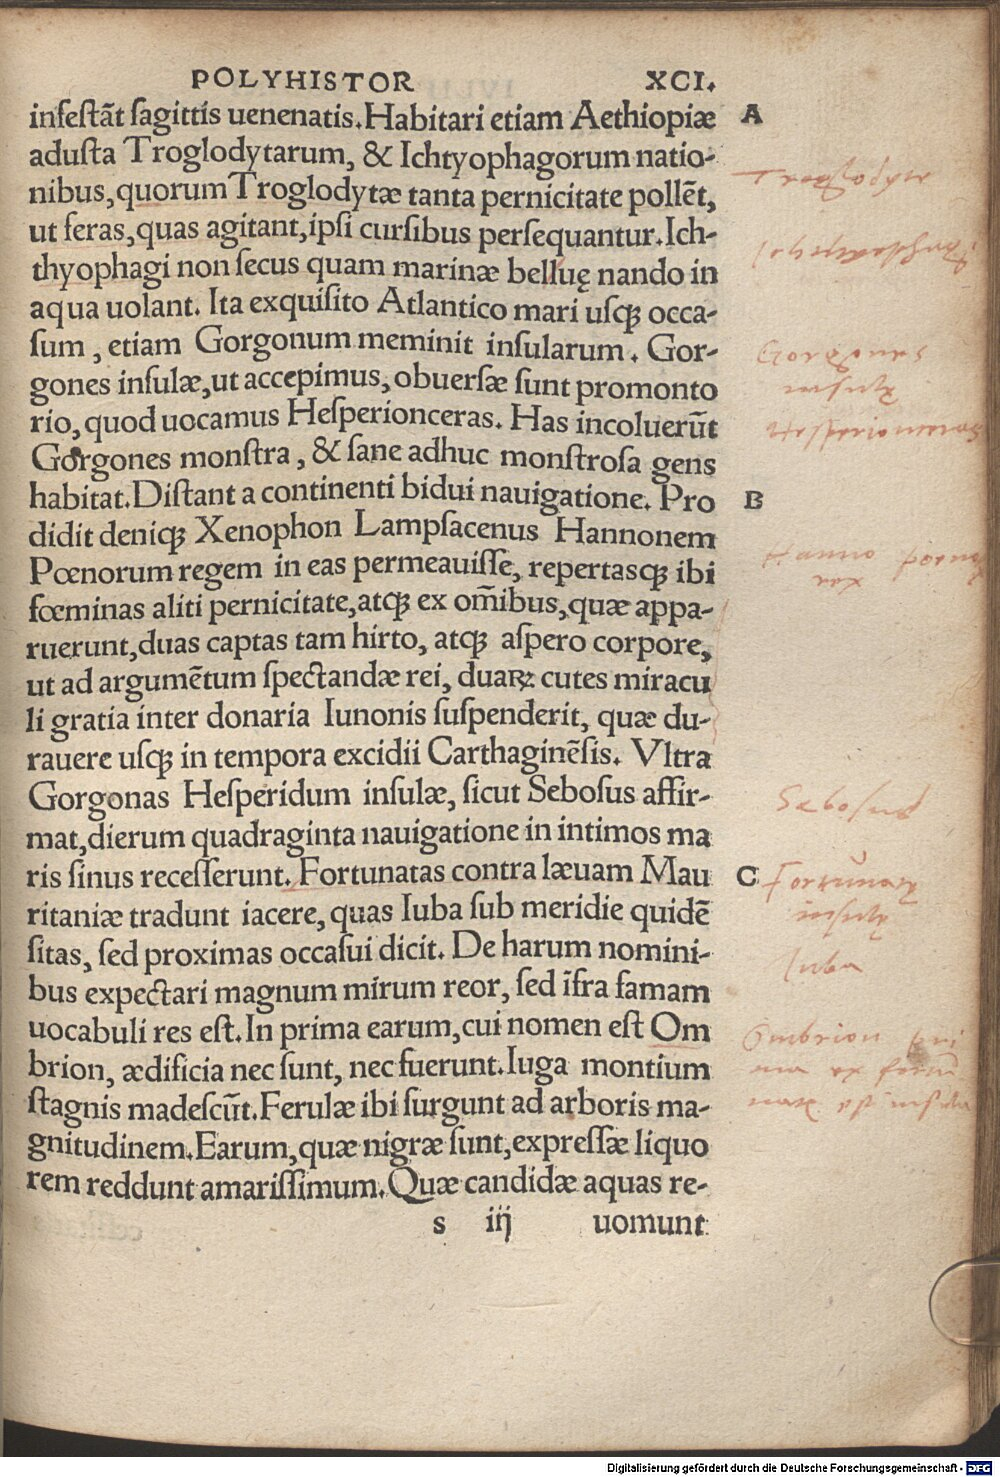 POLYHISTOR XCI.
infestãt sagittis uenenatis. Habitari etiam Aethiopiæ A
adusta Troglodytarum, & Ichtyophagorum natio-
nibus, quorum Troglodytæ tanta pernicitate pollẽt,
ut feras, quas agitant, ipsi cursibus persequantur. Ich-
thyophagi non secus quam marinæ belluę nando in
aqua uolant. Ita exquisito Atlantico mari usq; occa-
sum, etiam Gorgonum meminit insularum. Gor-
gones insulæ, ut accepimus, obuersæ sunt promonto
rio, quod uocamus Hesperionceras. Has incoluerũt
Gorgones monstra, & sane adhuc monstrosa gens
habitat. Distant a continenti bidui nauigatione. Pro B
didit deniq; Xenophon Lampsacenus Hannonem
Pœnorum regem in eas permeauisse, repertasq; ibi
fœminas aliti pernicitate, atq; ex om̃ibus, quæ appa-
ruerunt, duas captas tam hirto, atq; aspero corpore,
ut ad argumẽtum spectandæ rei, duaꝝ cutes miracu
li gratia inter donaria Iunonis suspenderit, quæ du-
rauere usq; in tempora excidii Carthaginẽsis. Vltra
Gorgonas Hesperidum insulæ, sicut Sebosus affir-
mat, dierum quadraginta nauigatione in intimos ma
ris sinus recesserunt. Fortunatas contra læuam Mau C
ritaniæ tradunt iacere, quas Iuba sub meridie quidẽ
sitas, sed proximas occasui dicit. De harum nomini-
bus expectari magnum mirum reor, sed ĩfra famam
uocabuli res est. In prima earum, cui nomen est Om
brion, ædificia nec sunt, nec fuerunt. Iuga montium
stagnis madescũt. Ferulæ ibi surgunt ad arboris ma-
gnitudinem. Earum, quæ nigræ sunt, expressæ liquo
rem reddunt amarissimum. Quæ candidæ aquas re-
s iij uomunt
Iuba
Digitalisierung gefördert durch die Deutsche Forschungsgemeinschaft - DFG